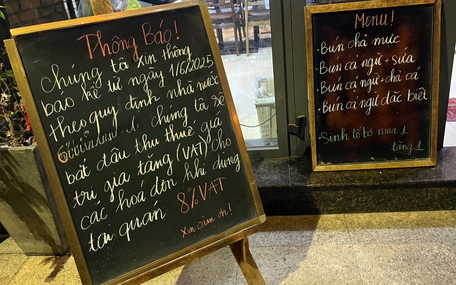 Thông Báo!
Chúng tôi xin thông
báo kể từ ngày 1/6/2025
theo quy định nhà nước
chúng tôi sẽ
bắt đầu thu thuế giá
trị gia tăng (VAT) cho
các hoá đơn khi dùng
tại quán 8% VAT
Xin cảm ơn!
Menu!
· Bún chả mực
· Bún cá ngừ + sứa
· Bún cá ngừ + chả cá
· Bún cá ngừ đặc biệt
Sinh tố bơ mua 1
tặng 1